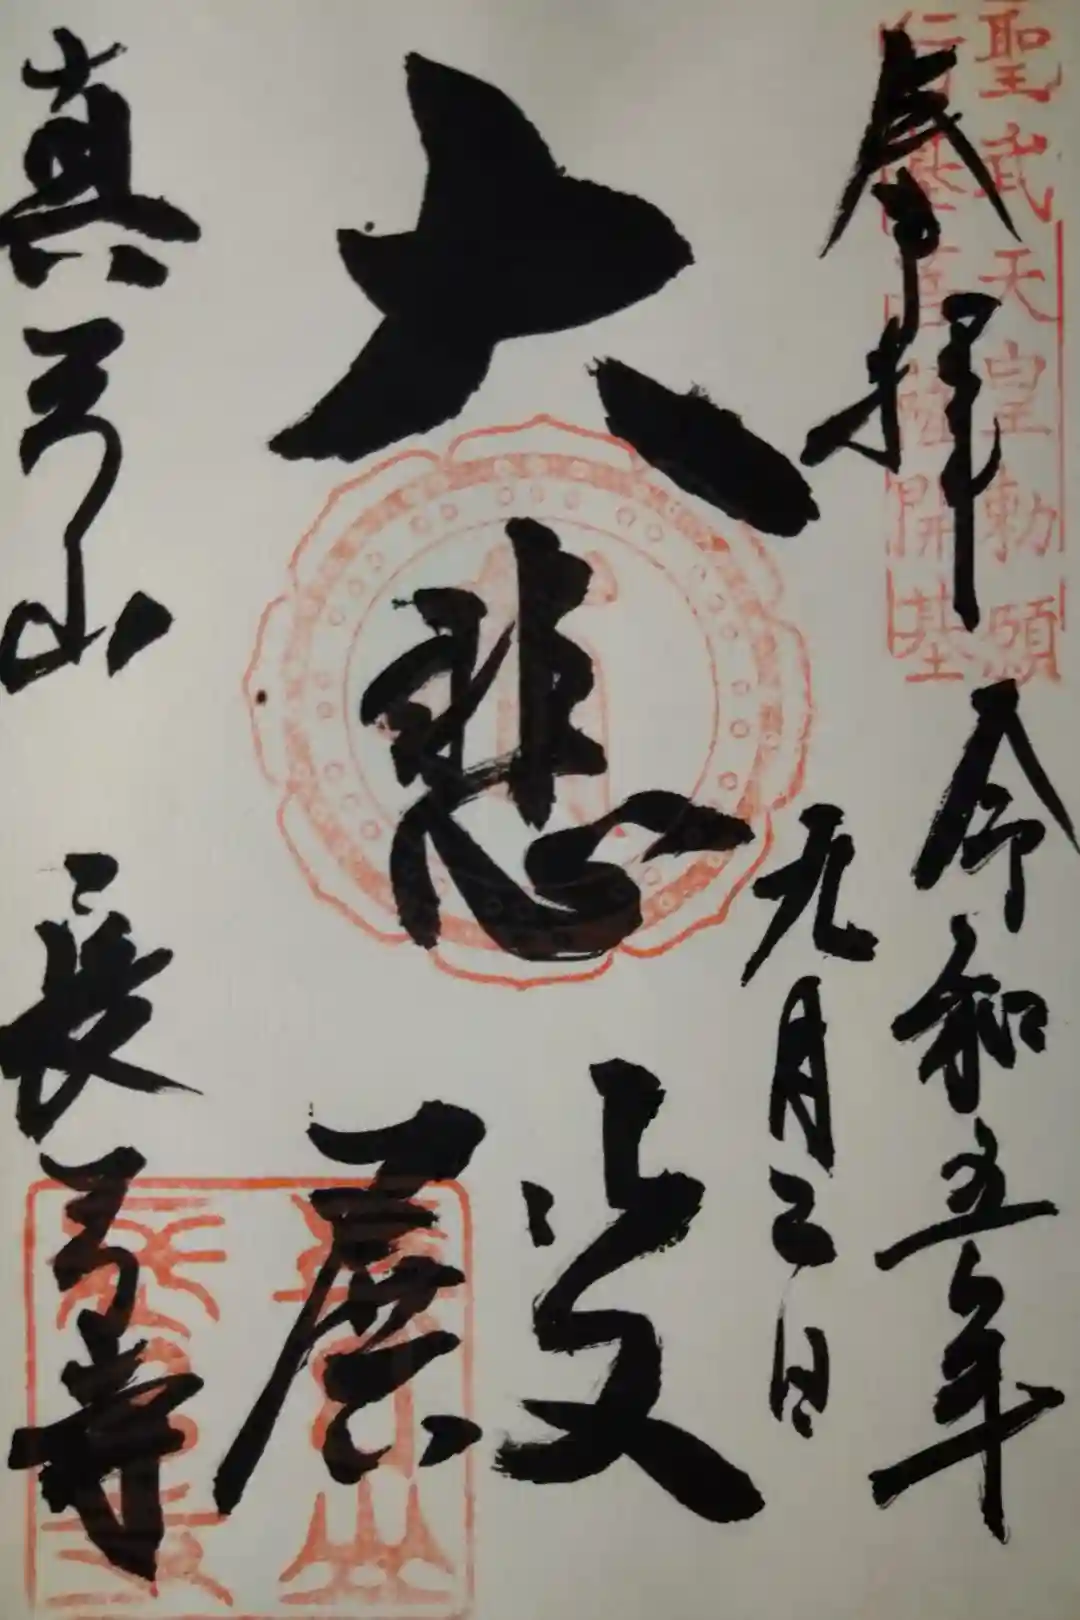 聖武天皇勅願
行基菩薩開基
奉拝
令和五年
九月三日
大悲殿
真弓山 長弓寺